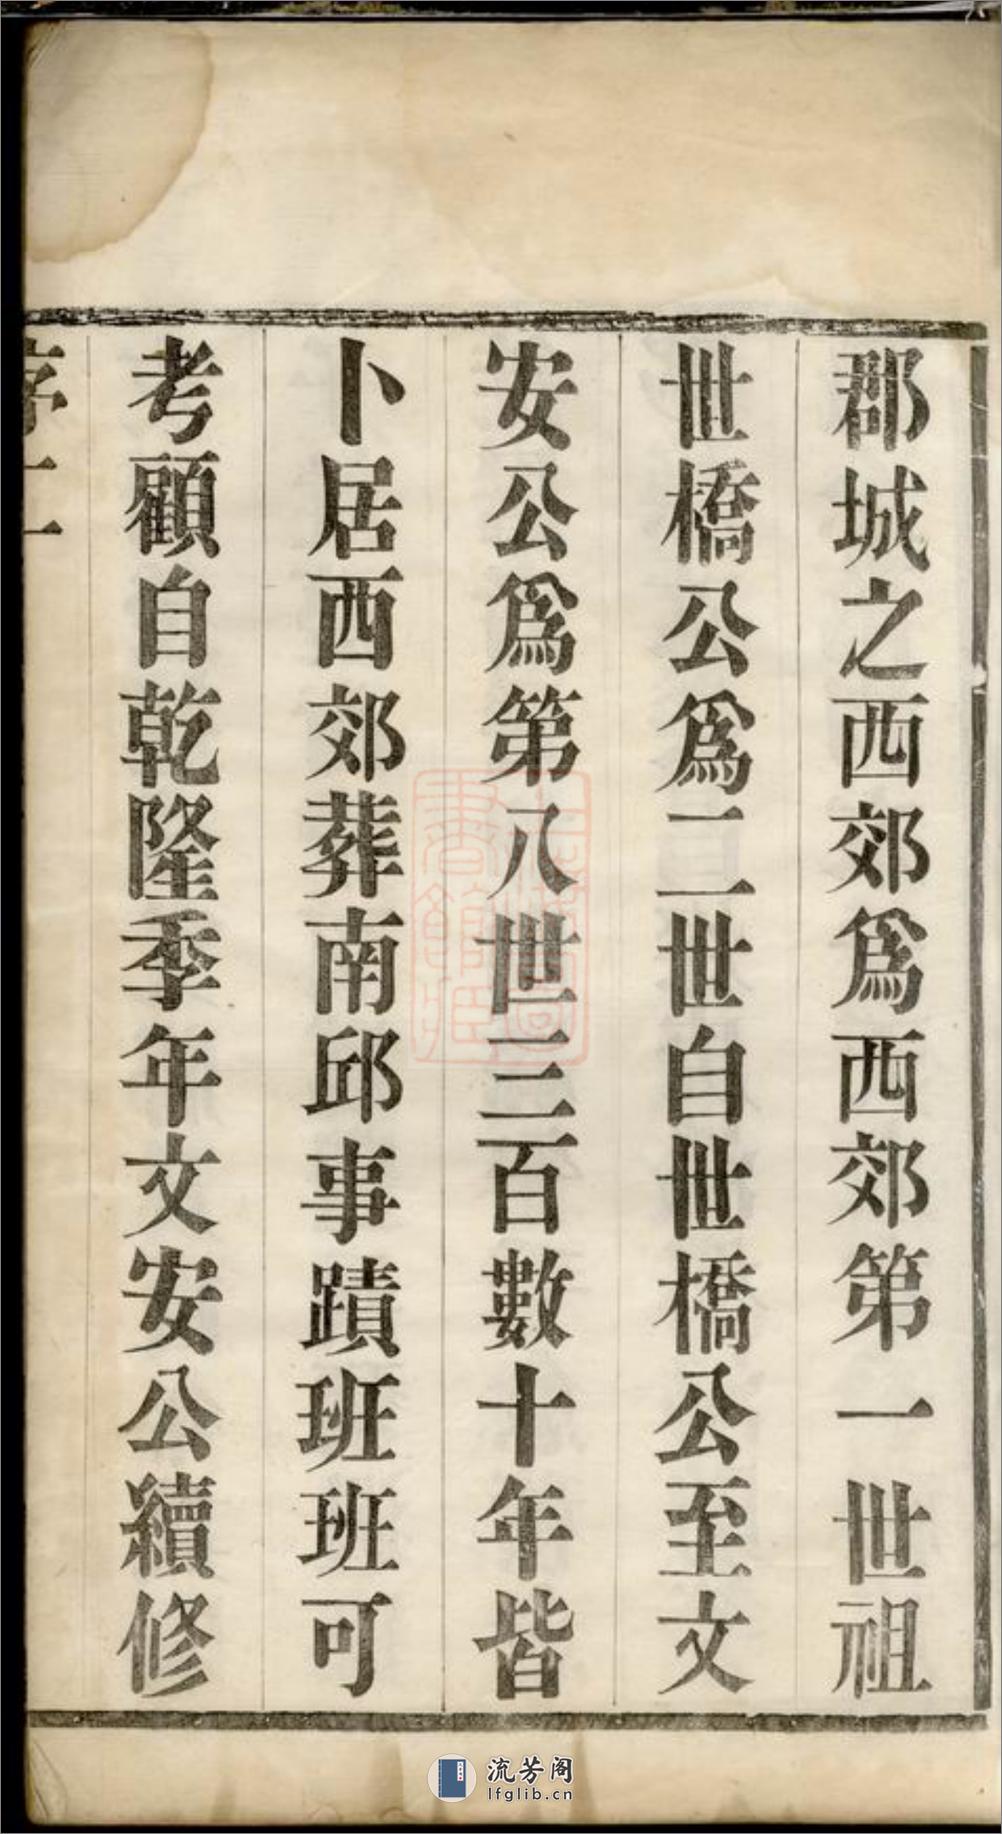 郡城之西郊爲西郊第一世祖
世橋公爲二世自世橋公至文
安公爲第八世三百數十年皆
卜居西郊葬南邱事蹟班班可
考顧自乾隆季年文安公續修
序二
流芳阁
lfglib.cn